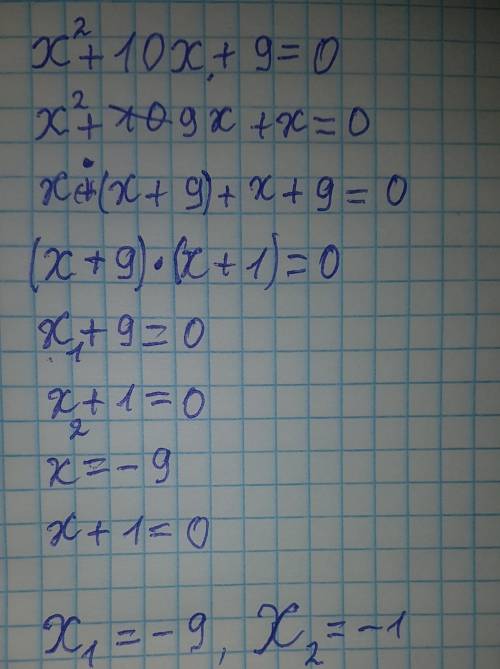 x² + 10x + 9 = 0
x² + 9x + x = 0
x·(x + 9) + x + 9 = 0
(x + 9)·(x + 1) = 0
x₁ + 9 = 0
x₂ + 1 = 0
x = - 9
x + 1 = 0
x₁ = - 9, x₂ = - 1